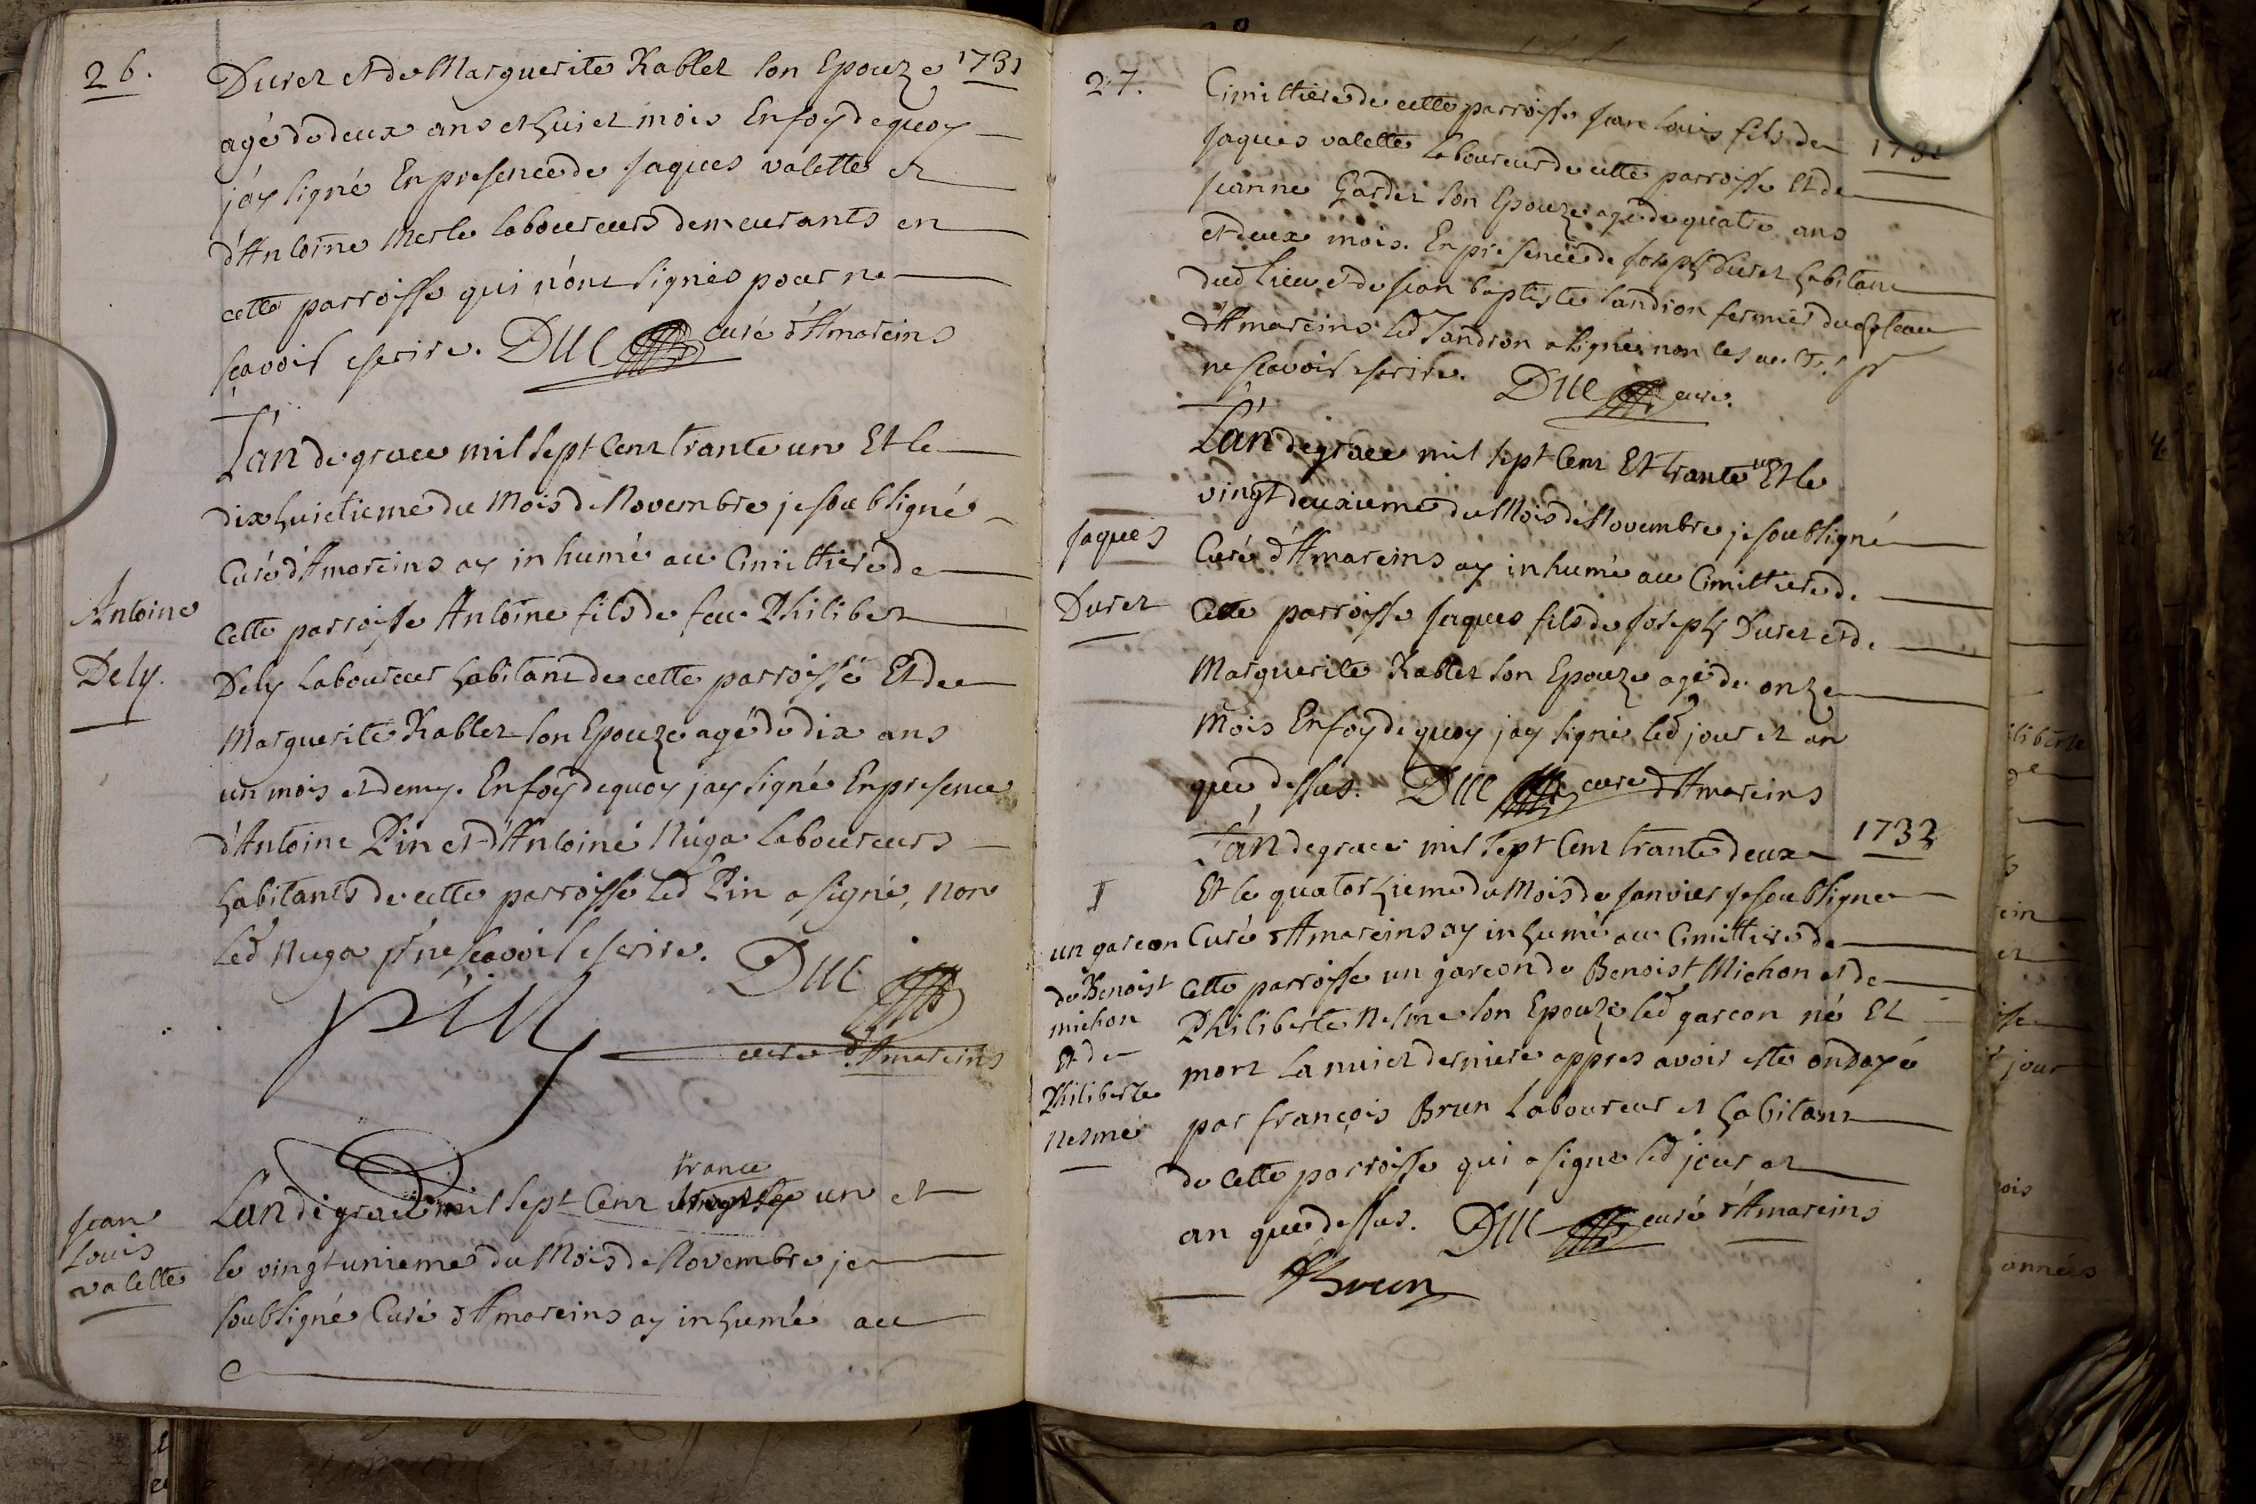 26.
1731
Duret et de Marguerite Rablet son Epouze
agé de deux ans et huiet mois En foy de quoy
j'ay signé En presence de Jaques valette et
d'Antoine Merle laboureurs demeurants en
cette parroisse qui n'ont signés pour ne
scavoir escrire. DUC curé d'Amareins
L'an de grace mil sept Cent trante un Et le
dixhuictieme du Mois de Novembre je soubsigné
Curé d'Amareins ay inhumé au Cimittiere de
Antoine
Dely.
cette parroisse Antoine fils de feu Philibert
Dely Laboureur habitant de cette parroisse Et de
Marguerite Rablet son Epouze agé de dix ans
un mois et demy. En foy de quoy jay signé En presence
d'Antoine Pin et d'Antoine Nuga laboureurs
habitants de cette parroisse led Pin a signé, non
led Nuga pr ne scavoir escrire. DUC
PIN
curé d'Amareins
Jean
Louis
valette
trante
L'an de grace mil sept Cent un et
le vingtunieme du Mois de Novembre je
soubsigné Curé d'Amareins ay inhumé au
27.
1731
Cimittiere de cette parroisse Jean Louis fils de
Jaques valette laboureur de cette parroisse Et de
Jeanne Gardet son Epouze agé de quatre ans
et deux mois. En presence de Joseph Duret habitant
dud lieu et de Jean baptiste Landion fermier du chateau
d'Amareins led Landion a signé, non les pr
ne scavoir escrire. DUC curé.
un
L'an de grace mil sept Cent Et trante Et le
vingt deuxieme du Mois de Novembre je soubsigné
Jaques
Duret
Curé d'Amareins ay inhumé au Cimittiere de
Cette parroisse Jaques fils de Joseph Duret et de
Marguerite Rablet son Epouze agé de onze
Mois En foy de quoy jay signé led jour et an
que dessus. DUC curé d'Amareins
1732
L'an de grace mil sept Cent trante deux
Et le quatorzieme du Mois de Janvier je soubsigne
I
un garcon
de Benoist
michon
Et de
Philiberte
Nesme
Curé d'Amareins ay inhumé au Cimittiere de
Cette parroisse un garcon de Benoist Michon et de
Philiberte Nesme son Epouze led garcon né Et
mort La nuiet derniere appres avoir este ondoyé
par françois Brun Laboureur et habitant
de cette parroisse qui a signe led jour et
an que dessus. DUC curé d'Amareins
fBrun